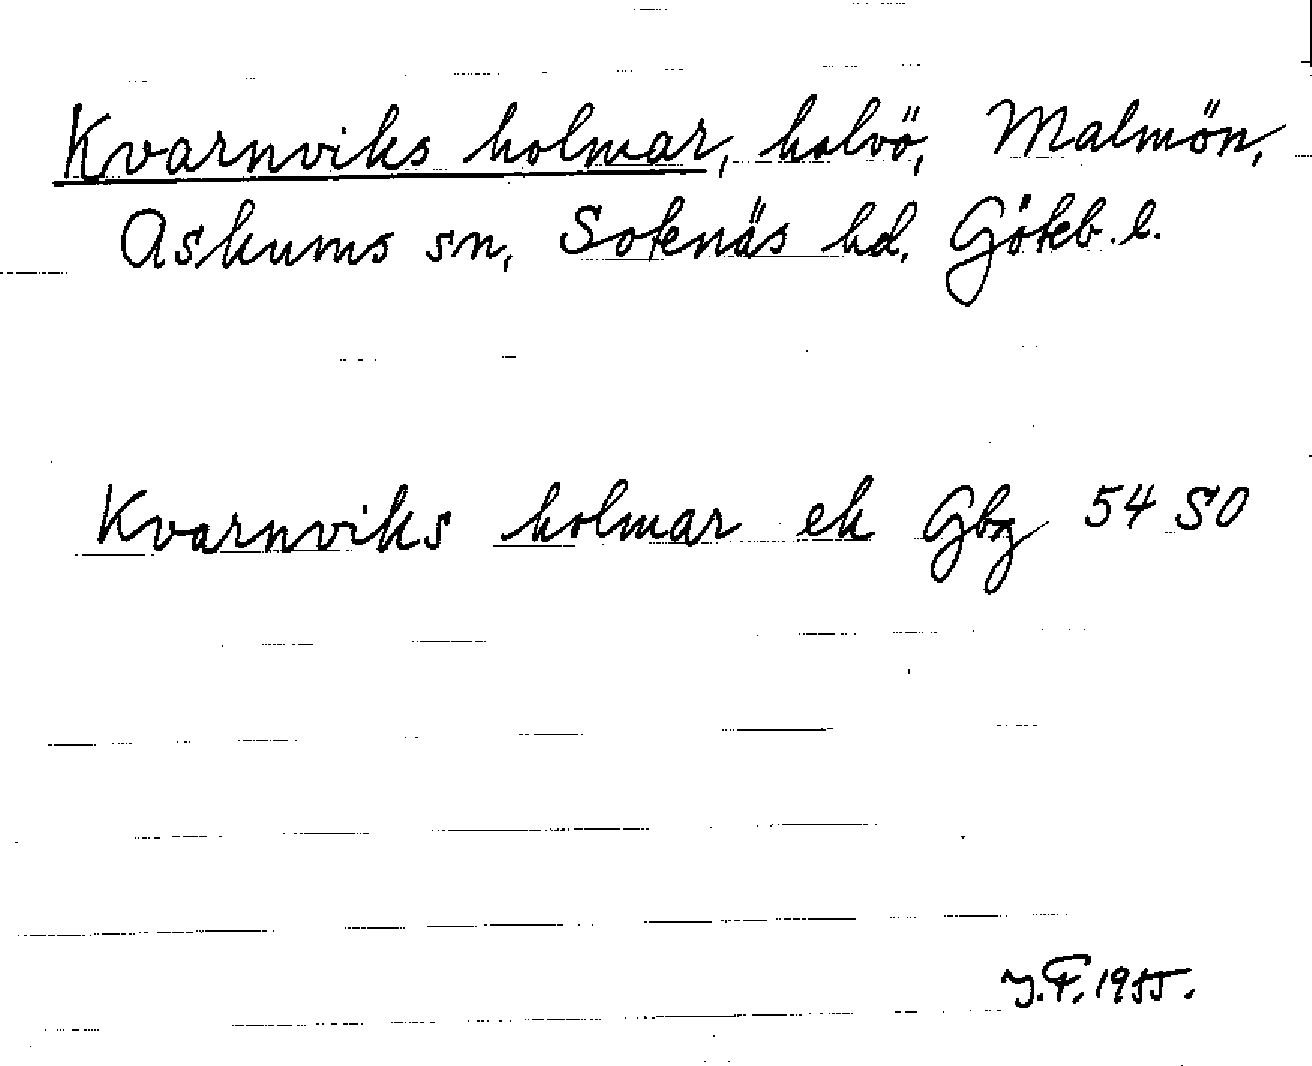 Kvarnviks holmar, halvö, Malmön,
Askums sn, Sotenäs hd, Göteb. l.
Kvarnviks holmar ek Gbg 54 SO
Y.F. 1955.